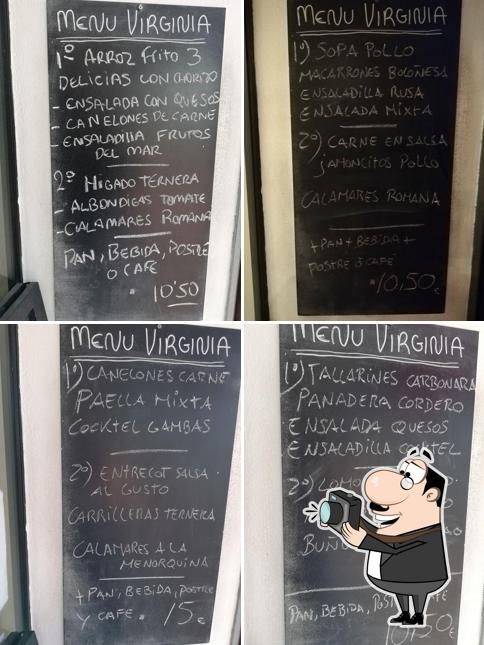 MENU VIRGINIA
1º ARROZ FRITO 3
DELICIAS CON CHORIZO
- ENSALADA CON QUESOS
- CANELONES DE CARNE
- ENSALADILLA FRUTOS
DEL MAR
2º HIGADO TERNERA
- ALBONDIGAS TOMATE
- CALAMARES ROMANA
PAN, BEBIDA, POSTRE
O CAFE
10'50
MENU VIRGINIA
1º) SOPA POLLO
MACARRONES BOLOÑESA
ENSALADILLA RUSA
ENSALADA MIXTA
2º) CARNE EN SALSA
JAMONCITOS POLLO
CALAMARES ROMANA
+ PAN + BEBIDA +
POSTRE ó CAFÉ
10,50€
MENU VIRGINIA
1º) CANELONES CARNE
PAELLA MIXTA
COCKTEL GAMBAS
2º) ENTRECOT SALSA
AL GUSTO
CARRILLERAS TERNERA
CALAMARES A LA
MENORQUINA
+ PAN, BEBIDA, POSTRE
Y CAFE. 15€
MENU VIRGINIA
1º) TALLARINES CARBONARA
PANADERA CORDERO
ENSALADA QUESOS
ENSALADILLA COCKTEL
2º) LOMO
BUÑU
PAN, BEBIDA, POST